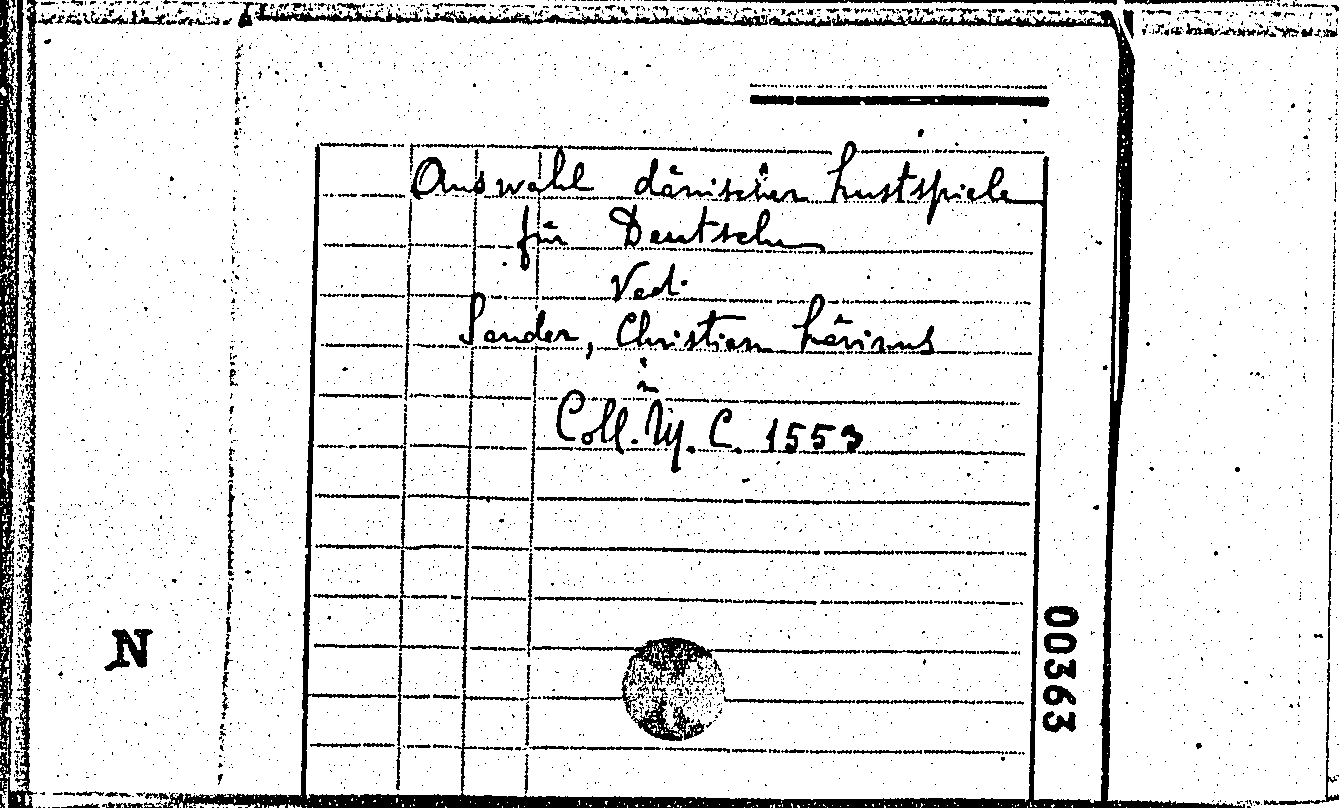 Auswahl dänischer Lustspiele
für Deutsche
Ved.
Sander, Christian Lävinus
in
Coll. Ny. C. 1553
N
00363